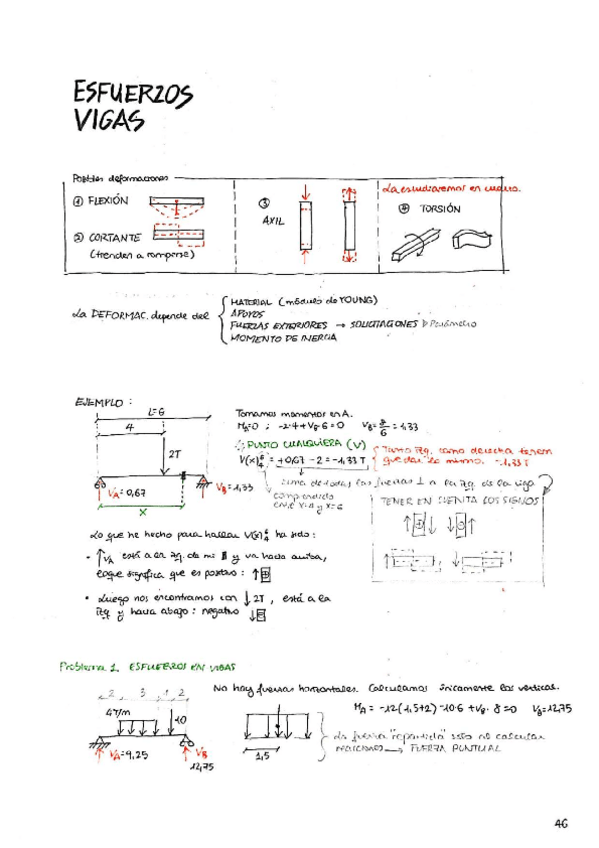 ESFUERZOS
VIGAS
Posibles deformaciones
① FLEXIÓN
② CORTANTE
(tienden a romperse)
③
AXIL
La estudiaremos en
④ TORSIÓN
La DEFORMAC. depende del
MATERIAL (módulo de YOUNG)
APOYOS
FUERZAS EXTERIORES → SOLICITACIONES
MOMENTO DE INERCIA
EJEMPLO:
L=6
4
2T
VA=0,67
VB=1,33
x
Tomamos momentos en A.
MA=0 ; -2·4+VB·6=0 VB=8/6=1,33
PUNTO CUALQUIERA (V)
V(x)⁶₄ = +0,67-2 = -1,33 T
Tanto izq. como derecha tienen
que dar lo mismo. -1,33 T
suma de todas las fuerzas ⊥ a la izq. de la viga
comprendido
entre x=4 y x=6
TENER EN CUENTA LOS SIGNOS
Lo que he hecho para hallar V(x)⁶₄ ha sido:
• ↑VA está a la izq. de mi y va hacia arriba,
lo que significa que es positivo: ↑⊕
• Luego nos encontramos con ↓2T, está a la
izq y hacia abajo: negativo ↓⊟
Problema 1. ESFUERZOS EN VIGAS
2 3 1 2
4T/m
10
VA=9,25
VB
12,75
No hay fuerzas horizontales. Calculamos únicamente las verticales.
MA = -12(1,5+2)-10·6+VB·8=0 VB=12,75
1,5
La fuerza "repartida" solo al calcular
reacciones → FUERZA PUNTUAL
46